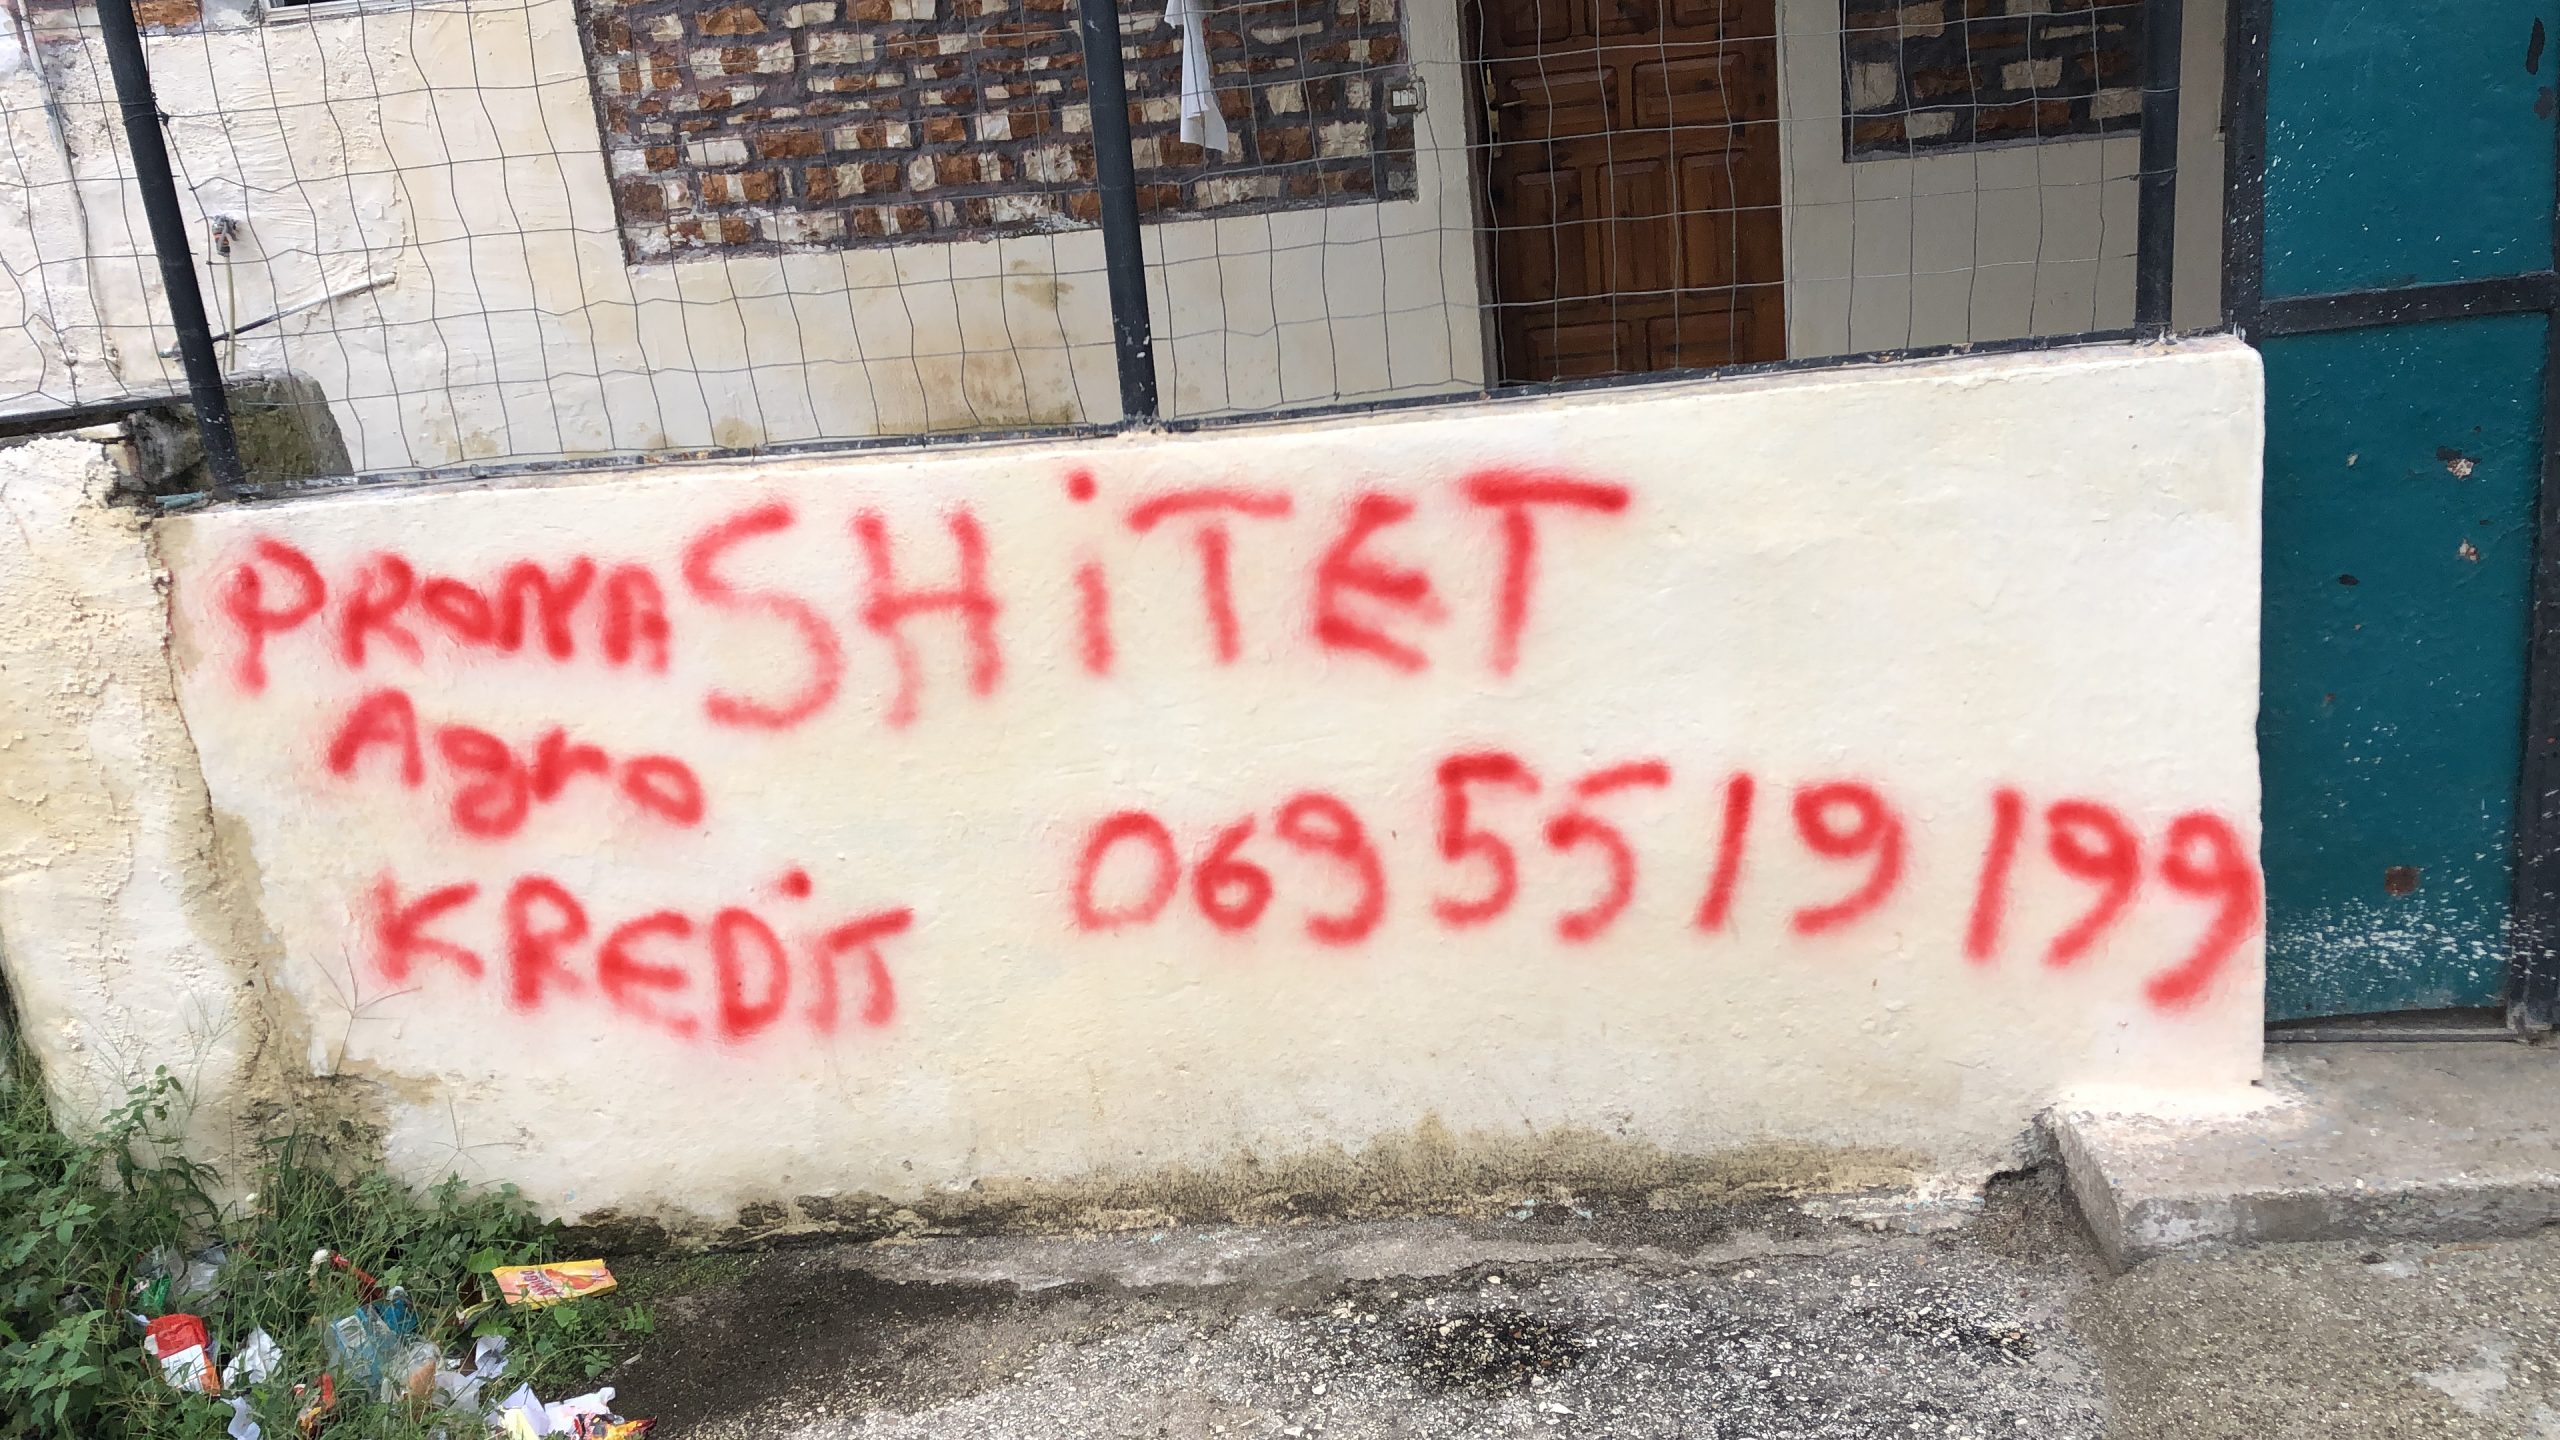 PRONA SHiTET
Agro
KREDiT 069 55 19 199